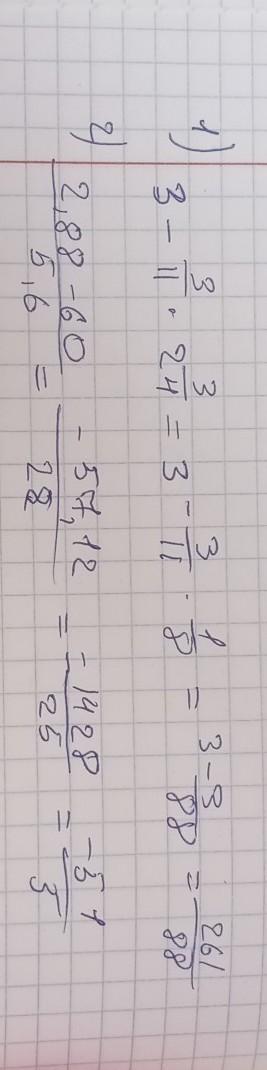 1)
3 - 3/11 · 3/24 = 3 - 3/11 · 1/8 = 3-3/88 = 261/88
2)
2,88-60/5,6 = -57,12/28 = -1428/25 = -51/5